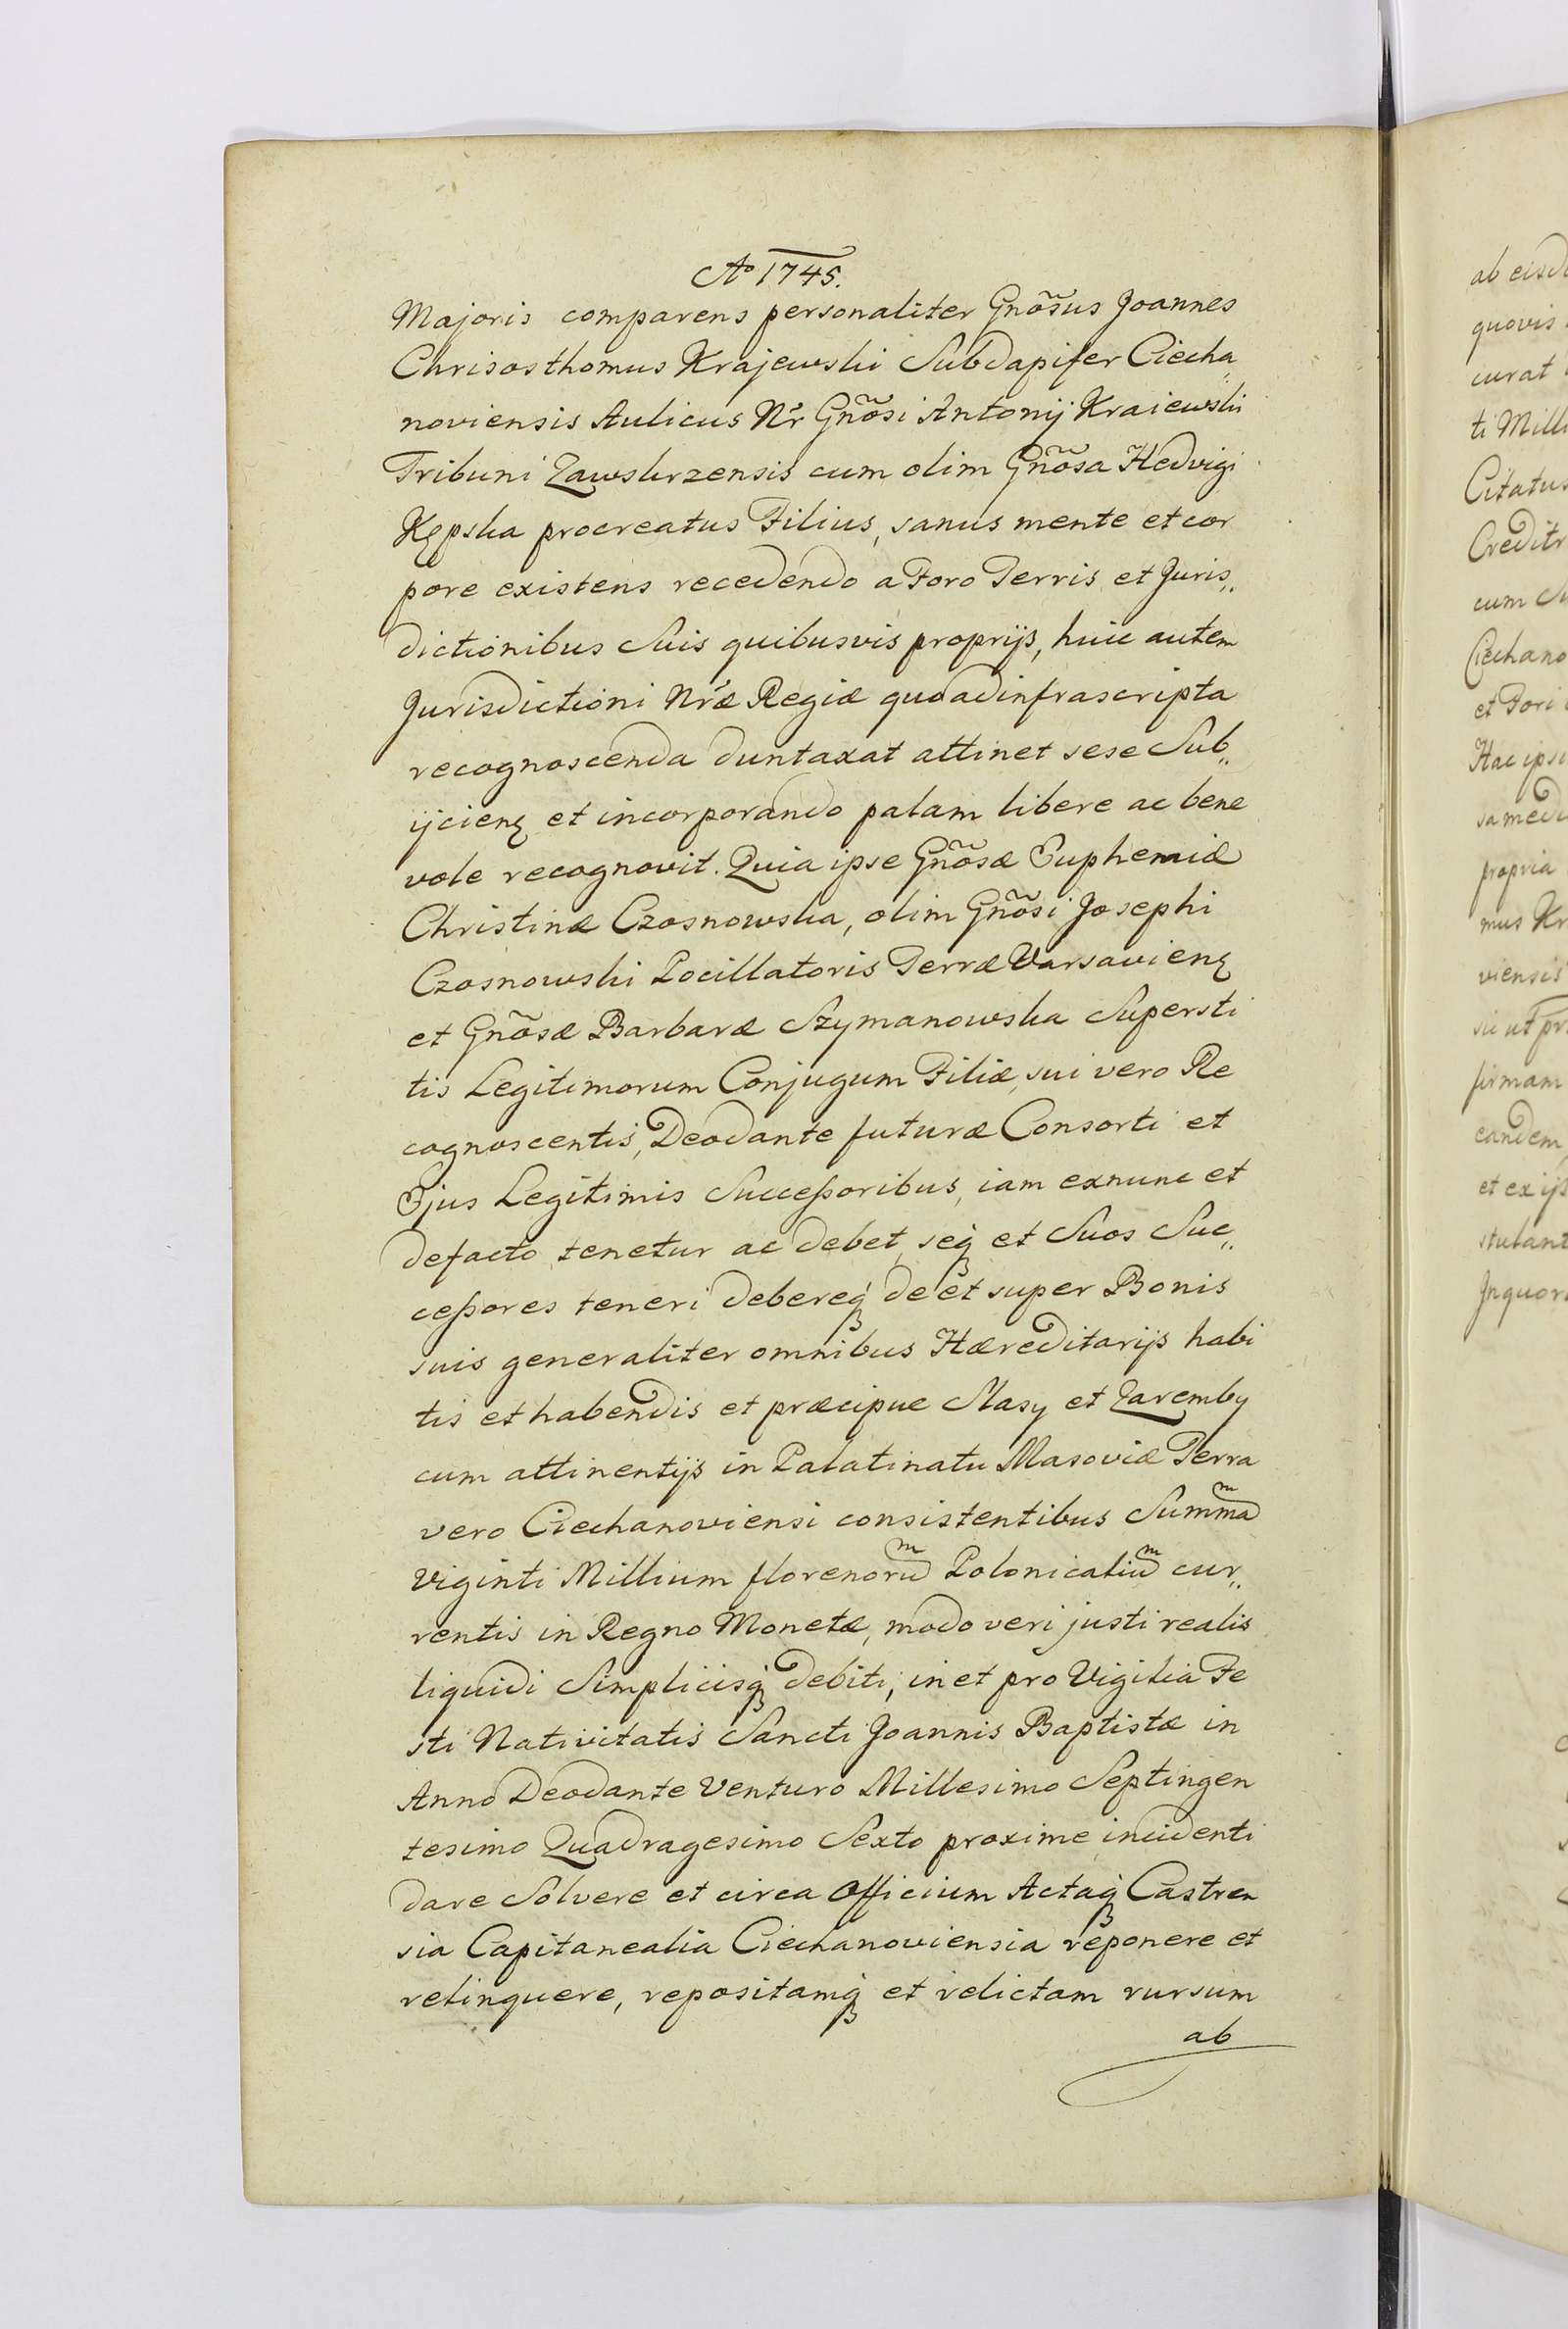 Ao 1745.
Majoris comparens personaliter Gnõsus Joannes
Chrisosthomus Krajewski Subdapifer Ciecha„
noviensis Aulicus Nr̃ Gnõsi Antonij Kraiewski
Tribuni Zawskrzensis cum olim Gnõsa Hedvigi
Kępska procreatus Filius, sanus mente et cor
pore existens recedendo a Foro Terris et Juris„
dictionibus Suis quibusvis proprijs, huic autem
Jurisdictioni Nræ Regiæ quoad infrascripta
recognoscenda duntaxat attinet sese Sub„
ijcienę et incorporando palam libere ac bene
vole recognovit. Quia ipse Gnõsæ Euphemiæ
Christinæ Czosnowska, olim Gnõsi Josephi
Czosnowski Pocillatoris Terræ Varsavienę
et Gnõsæ Barbaræ Szymanowska Supersti
tis Legitimorum Conjugum Filiæ, sui vero Re
cognoscentis, Deodante futuræ Consorti et
Ejus Legitimis Successoribus, iam exnunc et
defacto tenetur ac debet, seq́ et Suos Suc„
cessores teneri debereq́ de et super Bonis
suis generaliter omnibus Hæreditarijs habi
tis et habendis et præcipue Slasy et Zaremby
cum attinentijs in Palatinatu Masoviæ Terra
vero Ciechanoviensi consistentibus Summam
Viginti Millium florenorum Polonicalium cur„
rentis in Regno Monetæ, modo veri justi realis
liquidi Simplicisq́ debiti, in et pro Vigilia Fe
sti Nativitatis Sancti Joannis Baptistæ in
Anno Deodante Venturo Millesimo Septingen
tesimo Quadragesimo Sexto proxime incidenti
dare Solvere et circa Officium Actaq́ Castren
sia Capitanealia Ciechanoviensia reponere et
relinquere, repositamq́ et relictam rursum
ab
ab
quovis
curat
ti
Citatus
cum
et
propria
mus
viensis
firmam
eandem
et